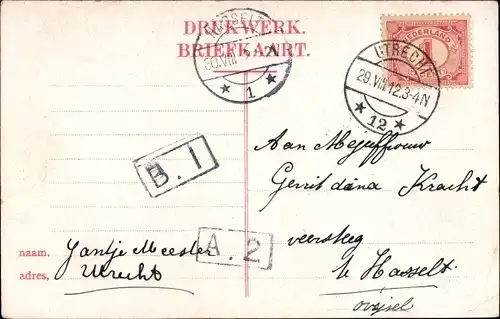 DRUKWERK.
BRIEFKAART.
HASSELT
30.VIII
1
NEDERLAND
1
UTRECHT
29.VIII.12.3-4N
12
B. 1
A. 2
Aan Mejuffrouw
Gerrit dina Kracht
veersteeg
te Hasselt.
Overijsel
naam. Jantje Meesler
adres, Utrecht